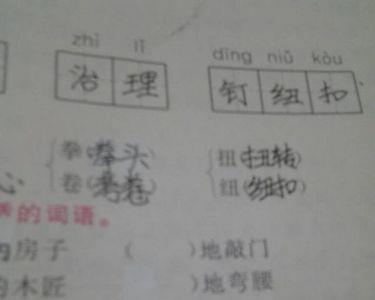 zhì lǐ dīng niǔ kòu
治理 钉纽扣
拳(拳头) 扭(扭转)
卷(考卷) 纽(纽扣)
心
的词语。
房子 ( )地敲门
的木匠 )地弯腰